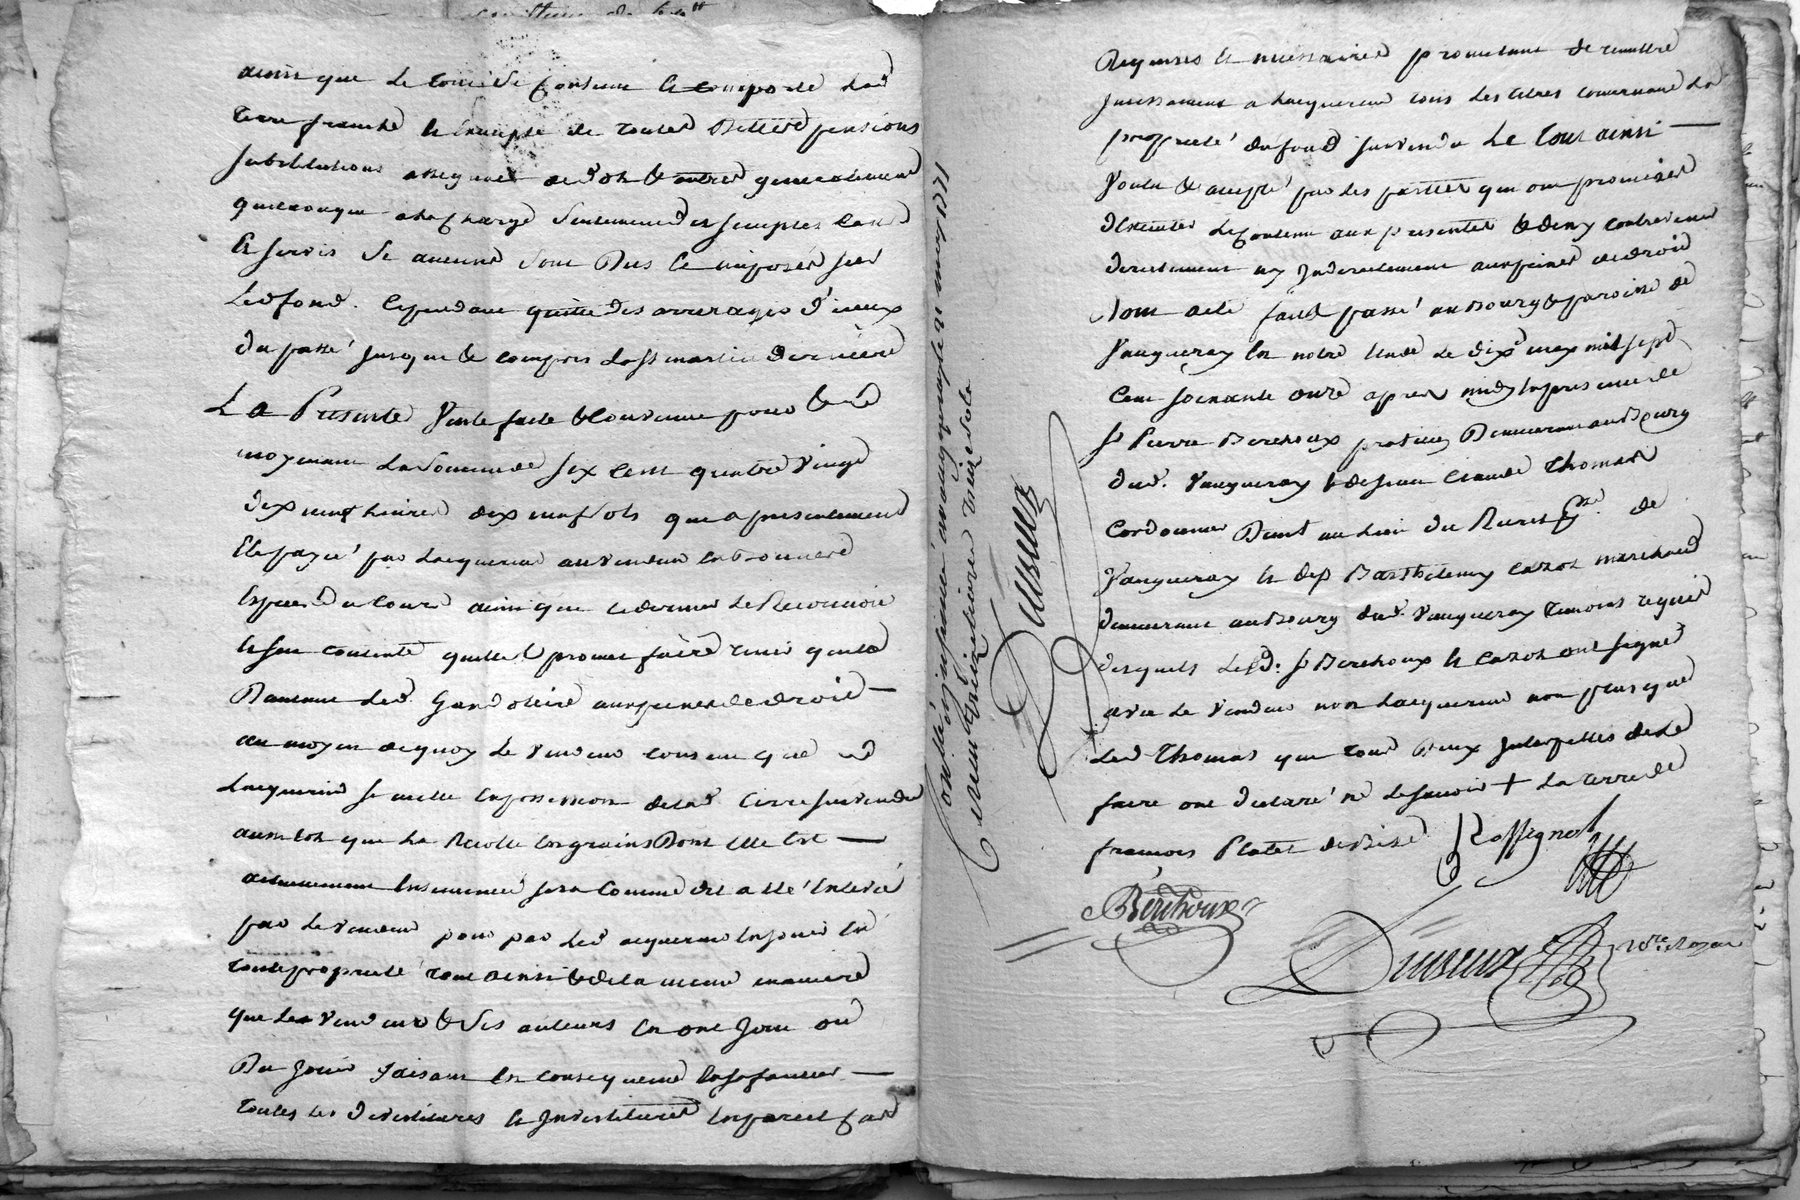 ainsi que le tout se contient et comporte lad
terre franche et exempte de toutes dettes pensions
substitutions assignats de dot et autres generalement
quelconque a la charge seulement des simples cens
et servis si aucuns sont dus et imposés sur
led fond. cependant quitte des arrerages d'iceux
du passé jusque et compris la st martin derniere
La Presente vente faite et convenue pour et
moyenant la somme de six cent quatre vingt
dix neuf livres dix neuf sols que a presentement
été payé par lacquereur au vendeur en bonnes
especes du cours ainsi que ce dernier le reconnoit
et sen contente quitte et promet faire tenir quitte
led aux peines de droit —
au moyen de quoy le vendeur consent que
lacquereur se mette en possession de lad terre survendue
aussitot que la Recolte en grains dont elle est —
actuellement ensemencée sera comme dit a été enlevée
par le vendeur pour par led acquereur en jouir en
toute propriété tout ainsi et de la meme maniere
que led vendeur et ses auteurs en ont joui ou
du jouir faisant en consequence en sa faveur —
toutes les devestitures et investitures en pareil cas
Requises et necessaires promettant de remettre
incessament a lacquereur tous les titres concernant la
propriété du fond survendu Le tout ainsi —
voulu et accepté par les parties qui ont promis
dexecuter le contenu aux presentes et de ny contrevenir
directement ny indirectement aux peines de droit
dont acte fait et passé au Bourg et paroisse de
Vaugneray en notre etude le dix may mil sept
cent soixante onze apres midy en presence de
sr Pierre Berthoux praticien demeurant au Bourg
dud. Vaugneray et de Jean Claude Thomas
cordonnier demt au lieu du psse. de
Vaugneray et de sr Barthelemy marchand
demeurant au Bourg dud. Vaugneray temoins requis
desquels led. sr Berthoux et ont signé
avec le vendeur non lacquereur non plus que
led Thomas que tous deux interpellés de le
faire ont declaré ne le savoir + la terre de
francois
Rossignol
Berthoux
nore royal
Controlé a